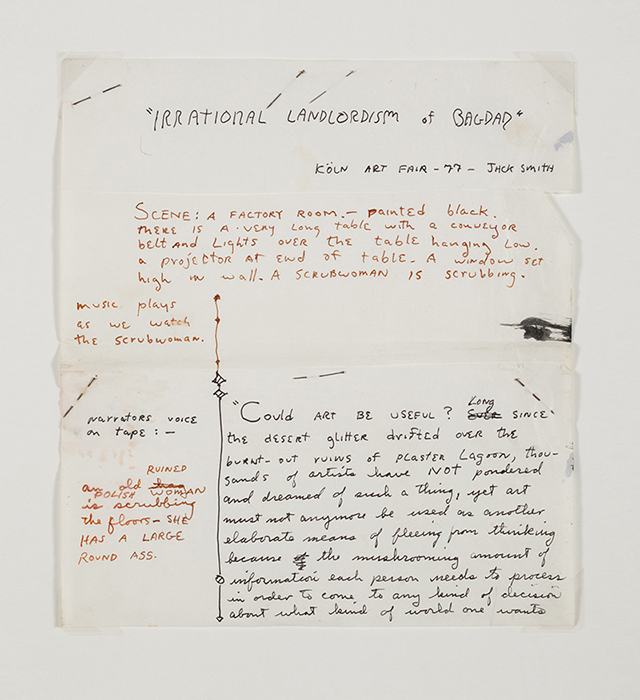 "IRRATIONAL LANDLORDISM of BAGDAD"
KÖLN ART FAIR - 77 - JACK SMITH
SCENE: A FACTORY ROOM. - painted black.
there is a very long table with a conveyor
belt and lights over the table hanging low.
a projector at end of table. A window set
high in wall. A SCRUBWOMAN is scrubbing.
music plays
as we watch
the scrubwoman.
narrators voice
on tape: -
RUINED
an old
POLISH WOMAN
is scrubbing
the floors - SHE
HAS A LARGE
ROUND ASS.
"Could ART BE USEFUL? Long SINCE
the desert glitter drifted over the
burnt-out ruins of PLASTER LAGOON, thou-
sands of artists have NOT pondered
and dreamed of such a thing, yet art
must not anymore be used as another
elaborate means of fleeing from thinking
because the mushrooming amount of
information each person needs to process
in order to come to any kind of decision
about what kind of world one wants